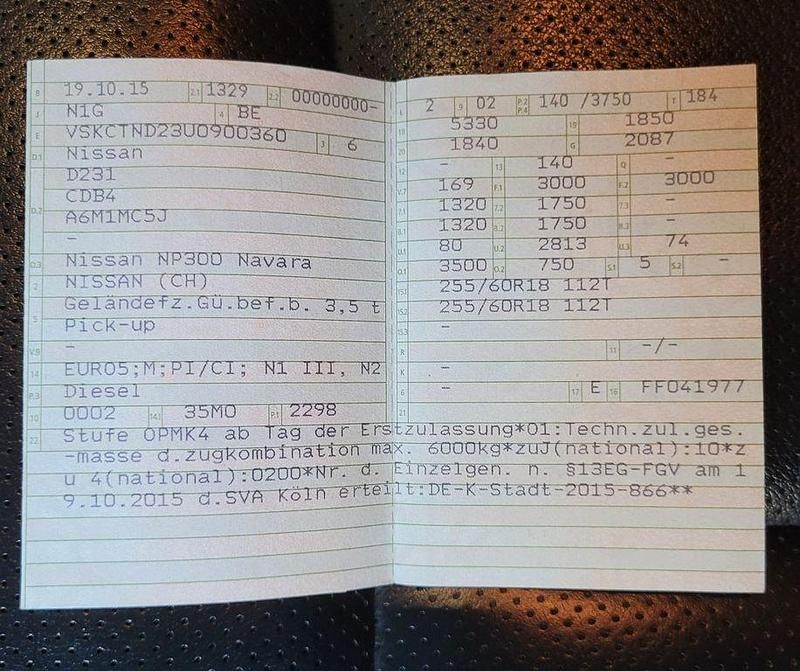 B 19.10.15 2.1 1329 2.2 00000000-
J N1G 4 BE
E VSKCTND23U0900360 3 6
D.1 Nissan
D231
CDB4
D.2 A6M1MC5J
-
D.3 Nissan NP300 Navara
2 NISSAN (CH)
Geländefz.Gü.bef.b. 3,5 t
5 Pick-up
V.9 -
14 EURO5;M;PI/CI; N1 III, N2
P.3 Diesel
10 0002 14.1 35M0 P.1 2298
L 2 9 02 P.2 P.4 140 /3750 T 184
18 5330 19 1850
20 1840 G 2087
12 - 13 140 Q -
V.7 169 F.1 3000 F.2 3000
7.1 1320 7.2 1750 7.3 -
8.1 1320 8.2 1750 8.3 -
U.1 80 U.2 2813 U.3 74
O.1 3500 O.2 750 S.1 5 S.2 -
15.1 255/60R18 112T
15.2 255/60R18 112T
15.3 -
R 11 -/-
K -
6 - 17 E 16 FF041977
21
22 Stufe OPMK4 ab Tag der Erstzulassung*01:Techn.zul.ges.
-masse d.zugkombination max. 6000kg*zuJ(national):10*z
u 4(national):0200*Nr. d. Einzelgen. n. §13EG-FGV am 1
9.10.2015 d.SVA Köln erteilt:DE-K-Stadt-2015-866**